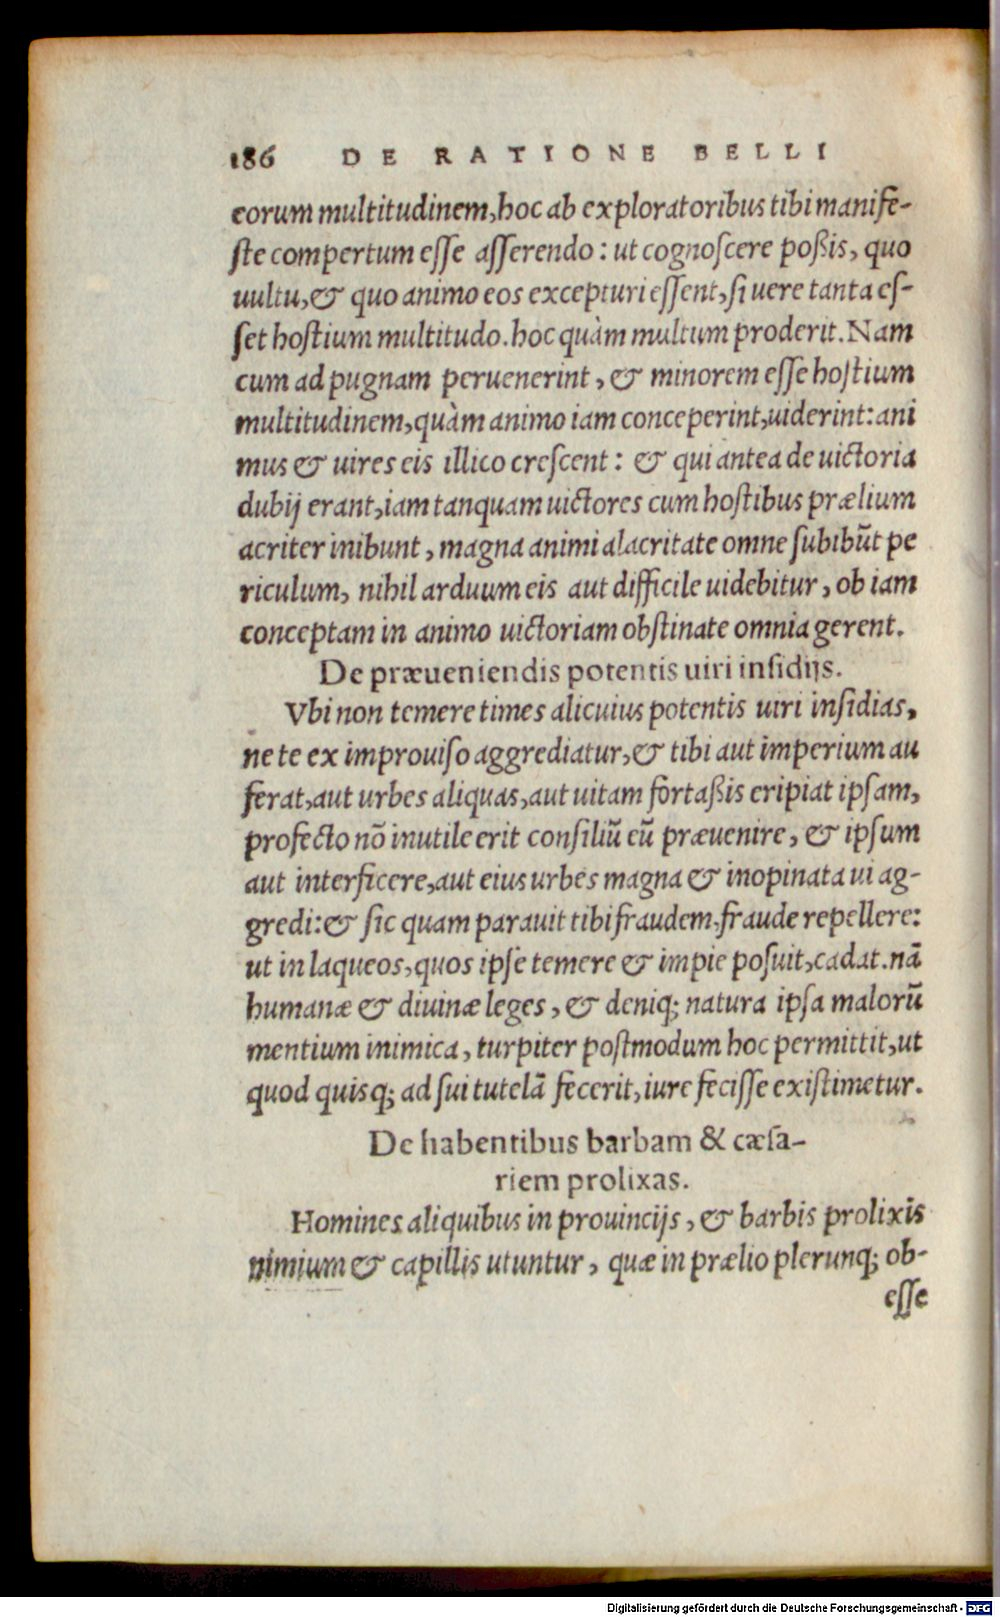 186 DE RATIONE BELLI
eorum multitudinem, hoc ab exploratoribus tibi manife-
ſte compertum eſſe aſſerendo: ut cognoſcere poßis, quo
uultu, & quo animo eos excepturi eſſent, ſi uere tanta eſ-
ſet hoſtium multitudo. hoc quàm multum proderit. Nam
cum ad pugnam peruenerint, & minorem eſſe hoſtium
multitudinem, quàm animo iam conceperint, uiderint: ani
mus & uires eis illico creſcent: & qui antea de uictoria
dubij erant, iam tanquam uictores cum hoſtibus prælium
acriter inibunt, magna animi alacritate omne ſubibũt pe
riculum, nihil arduum eis aut difficile uidebitur, ob iam
conceptam in animo uictoriam obſtinate omnia gerent.
De præueniendis potentis uiri inſidijs.
Vbi non temere times alicuius potentis uiri inſidias,
ne te ex improuiſo aggrediatur, & tibi aut imperium au
ferat, aut urbes aliquas, aut uitam fortaßis eripiat ipſam,
profecto nõ inutile erit conſiliũ eũ præuenire, & ipſum
aut interficere, aut eius urbes magna & inopinata ui ag-
gredi: & ſic quam parauit tibi fraudem, fraude repellere:
ut in laqueos, quos ipſe temere & impie poſuit, cadat. nã
humanæ & diuinæ leges, & deniq; natura ipſa malorũ
mentium inimica, turpiter poſtmodum hoc permittit, ut
quod quisq; ad ſui tutelã fecerit, iure feciſſe exiſtimetur.
De habentibus barbam & cæſa-
riem prolixas.
Homines aliquibus in prouincijs, & barbis prolixis
nimium & capillis utuntur, quæ in prælio plerunq; ob-
eſſe
Digitalisierung gefördert durch die Deutsche Forschungsgemeinschaft - DFG